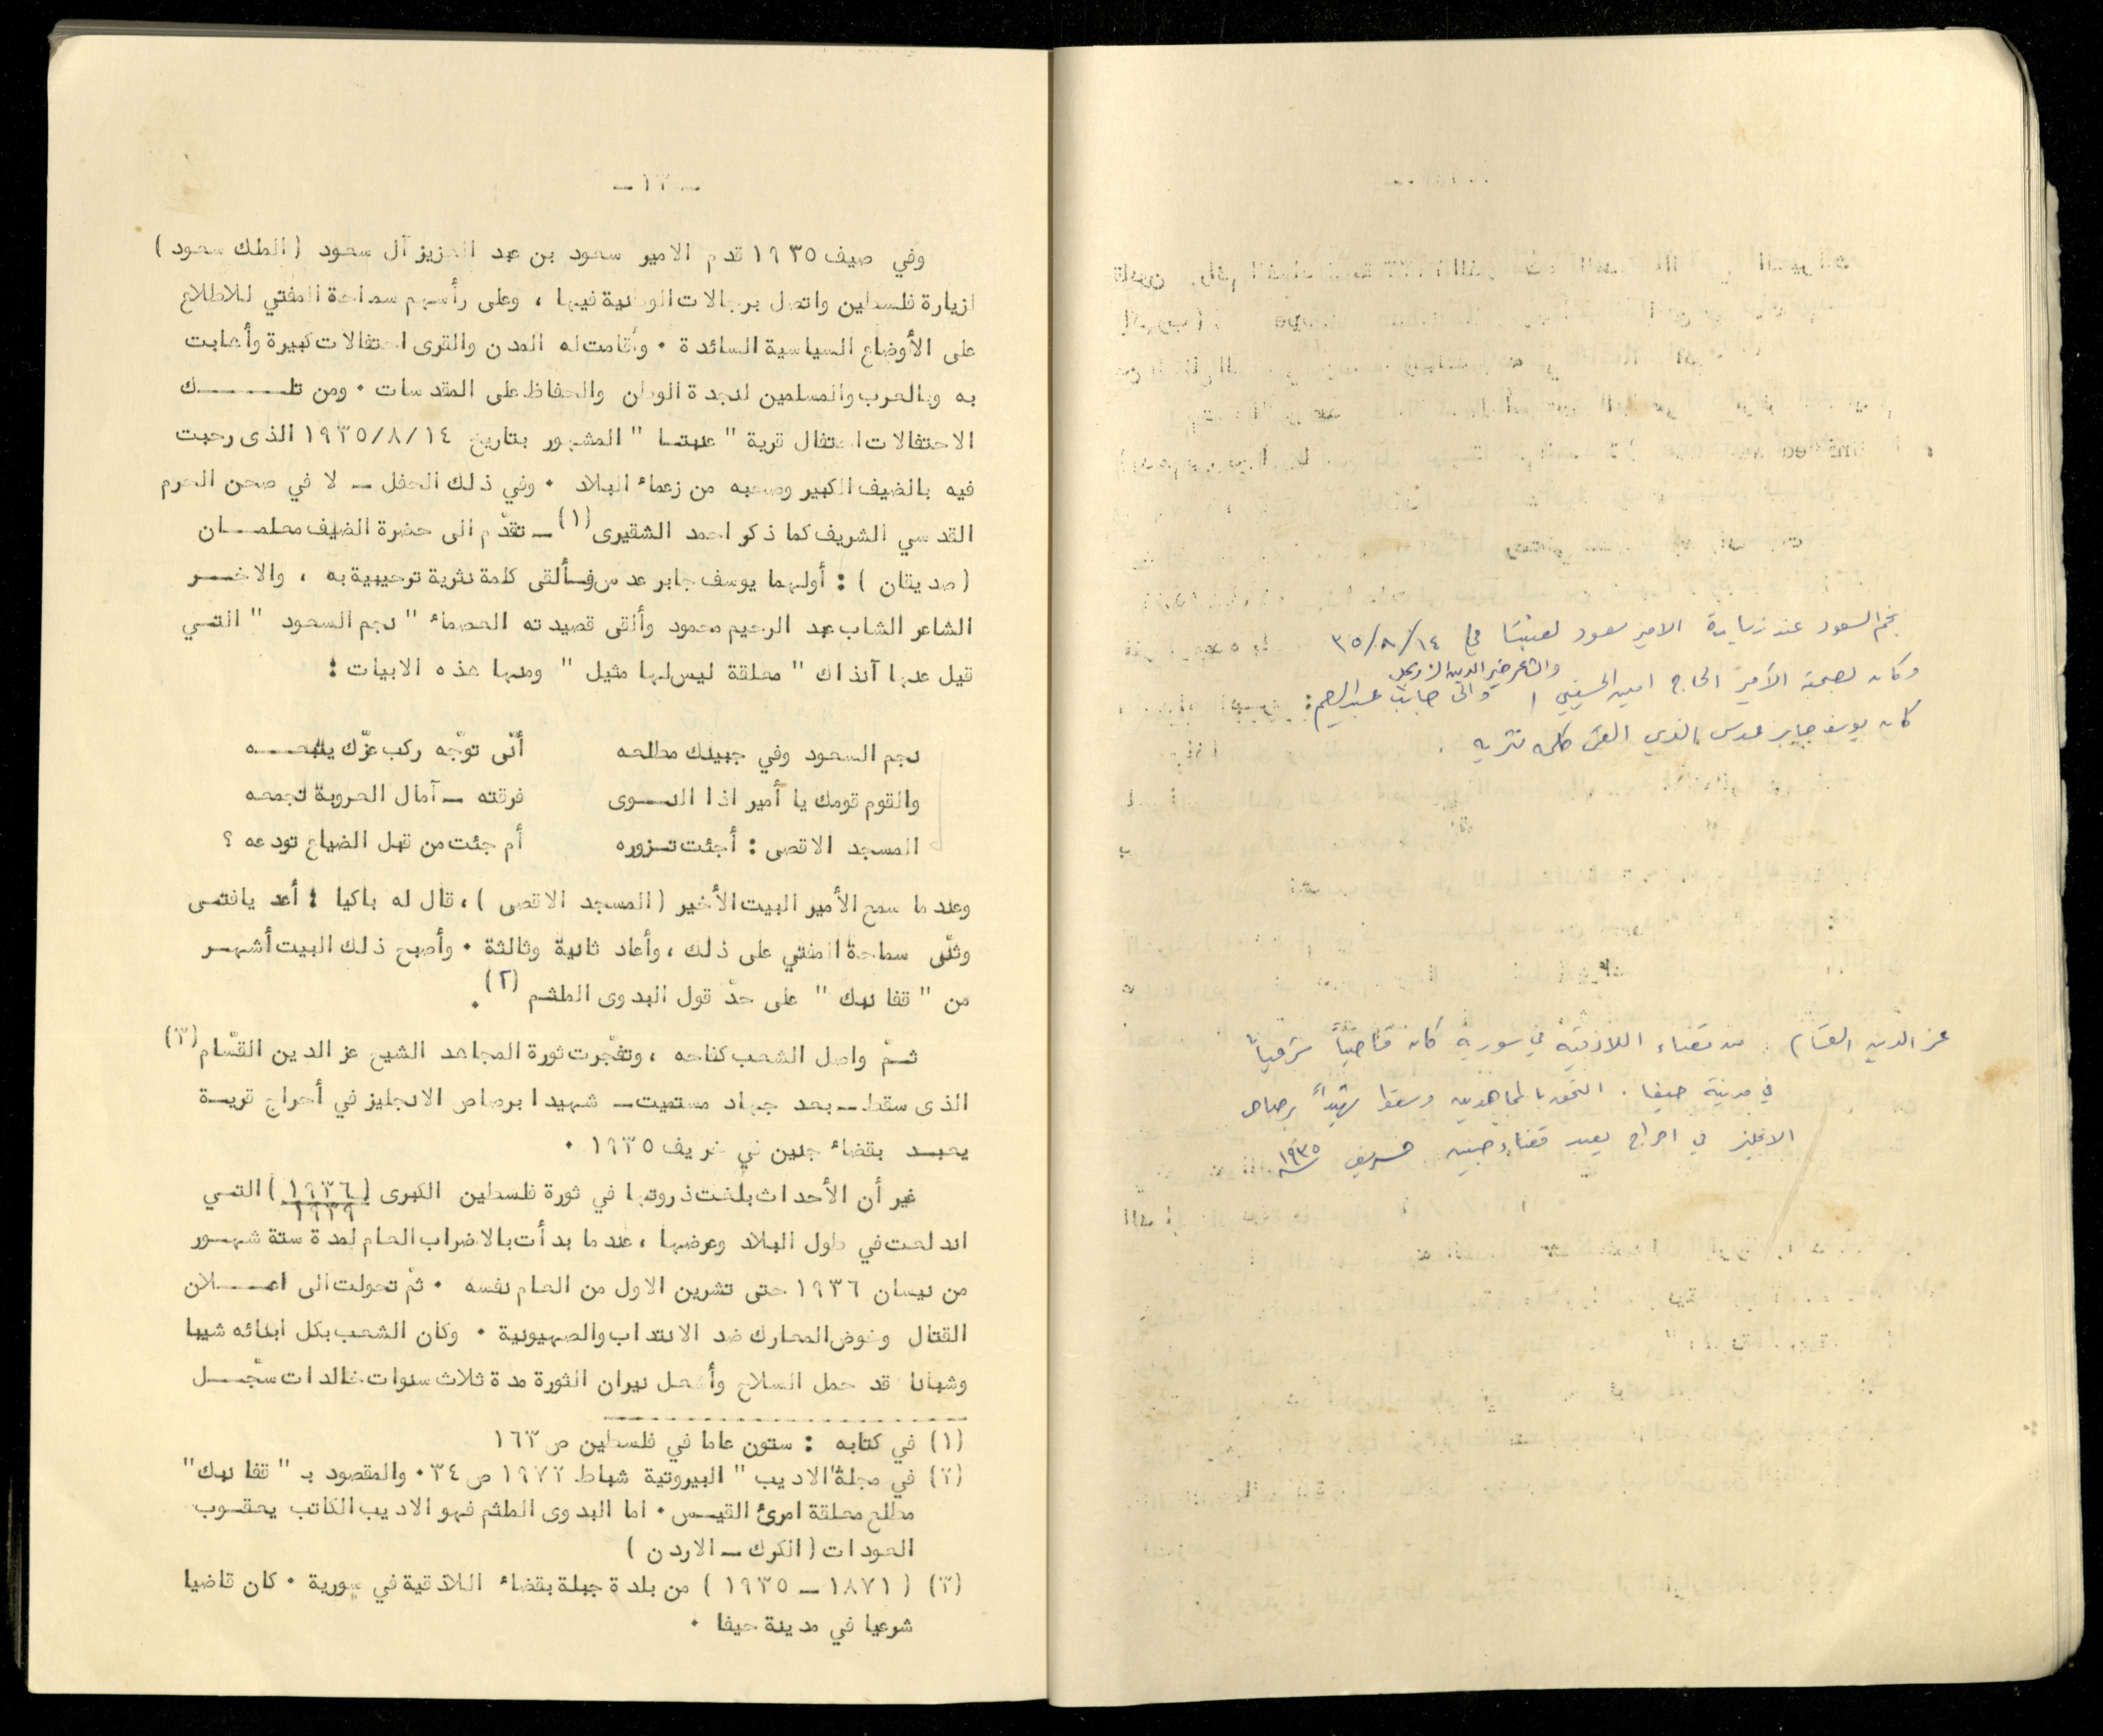 وفي صيف ١٩٣٥ قدم الامير سعود بن عبد العزيز آل سعود ( الملك سعود )
لزيارة فلسطين واتصل برجالات الوطنية فيها ، وعلى رأسهم سماحة المفتي للاطلاع
على الأوضاع السياسية السائدة ٠ وأقامت له المدن والقرى احتفالات كبيرة وأهابت
به وبالعرب والمسلمين لنجدة الوطن والحفاظ على المقدسات ٠ ومن تلـــــك
الاحتفالات احتفال قرية " عنبتـا " المشهور بتاريخ ١٩٣٥/٨/١٤ الذى رحبت
فيه بالضيف الكبير وصحبه من زعماء البلاد ٠ وفي ذلك الحفل ــ لا في صحن الحرم
القدسي الشريف كما ذكر احمد الشقيرى (١) ــ تقدّم الى حضرة الضيف معلمـــان
( صديقان ) : أولهما يوسف جابر عدس فـألقى كلمة نثرية ترحيبية به ، والاخـــر
الشاعر الشاب عبد الرحيم محمود وألقى قصيدته العصماء " نجم السعود " التـي
قيل عنها آنذاك " معلقة ليس لها مثيل " ومنها هذه الابيات :
نجم السعود وفي جبينك مطلعه أنّى توجّه ركب عزّك يتبعـــه
والقوم قومك يا أمير اذا النــوى فرقته ــ آمال العروبة تجمعه
المسجد الاقصى : أجئت تـزوره أم جئت من قبل الضياع تودعه ؟
وعندما سمع الأمير البيت الأخير ( المسجد الاقصى ) ، قال له باكيا : أعد يافتـى
وثنّى سماحة المفتي على ذلك ، وأعاد ثانية وثالثة ٠ وأصبح ذلك البيت أشهـر
من " قفا نبك " على حدّ قول البدوى الملثـم (٢) ٠
ثـمّ واصل الشعب كفاحه ، وتفجّرت ثورة المجاهد الشيخ عز الدين القسّام (٣)
الذى سقط ــ بعد جهاد مستميت ــ شهيدا برصاص الانجليز في أحراج قريـة
يعبـد بقضاء جنين في خريف ١٩٣٥ ٠
غير أن الأحداث بلغت ذروتها في ثورة فلسطين الكبرى ( ١٩٣٦ ) التـي
١٩٣٩
اندلعت في طول البلاد وعرضها ، عندما بدأت بالاضراب العام لمدة ستة شهـور
من نيسان ١٩٣٦ حتى تشرين الاول من العام نفسه ٠ ثمّ تحولت الى اعـــلان
القتال وخوض المعارك ضد الانتداب والصهيونية ٠ وكان الشعب بكل ابنائه شيبا
وشبانا قد حمل السلاح وأشعل نيران الثورة مدة ثلاث سنوات خالدات سجّــل
(١) في كتابه : ستون عاما في فلسطين ص ١٦٣
(٢) في مجلة "الاديب" البيروتية شباط ١٩٧٢ ص ٣٤ ٠ والمقصود بـ " قفا نبك "
مطلع معلقة امرئ القيـس ٠ اما البدوى الملثم فهو الاديب الكاتب يعقـوب
العودات ( الكرك ــ الاردن )
(٣) ( ١٨٧١ ــ ١٩٣٥ ) من بلدة جبلة بقضاء اللاذقية في سورية ٠ كان قاضيا
شرعيا في مدينة حيفا ٠
نجم السعود عند زيارة الامير سعود لعنبتا في ٣٥/٨/١٤
والشاعر خير الدين الزركلي
وكان بصحبة الأمير الحاج امين الحسيني والى جانب عبد الرحيم :
كان يوسف جابر عدس الذي القى كلمه نثريه .
عز الدين القسام : من قضاء اللاذقية في سورية كان قاضياً شرعياً
في مدينة حيفا . التحق بالمجاهدين وسقط شهيداً برصاص
الانجليز في احراج يعبد قضاء جنين خريف ١٩٣٥